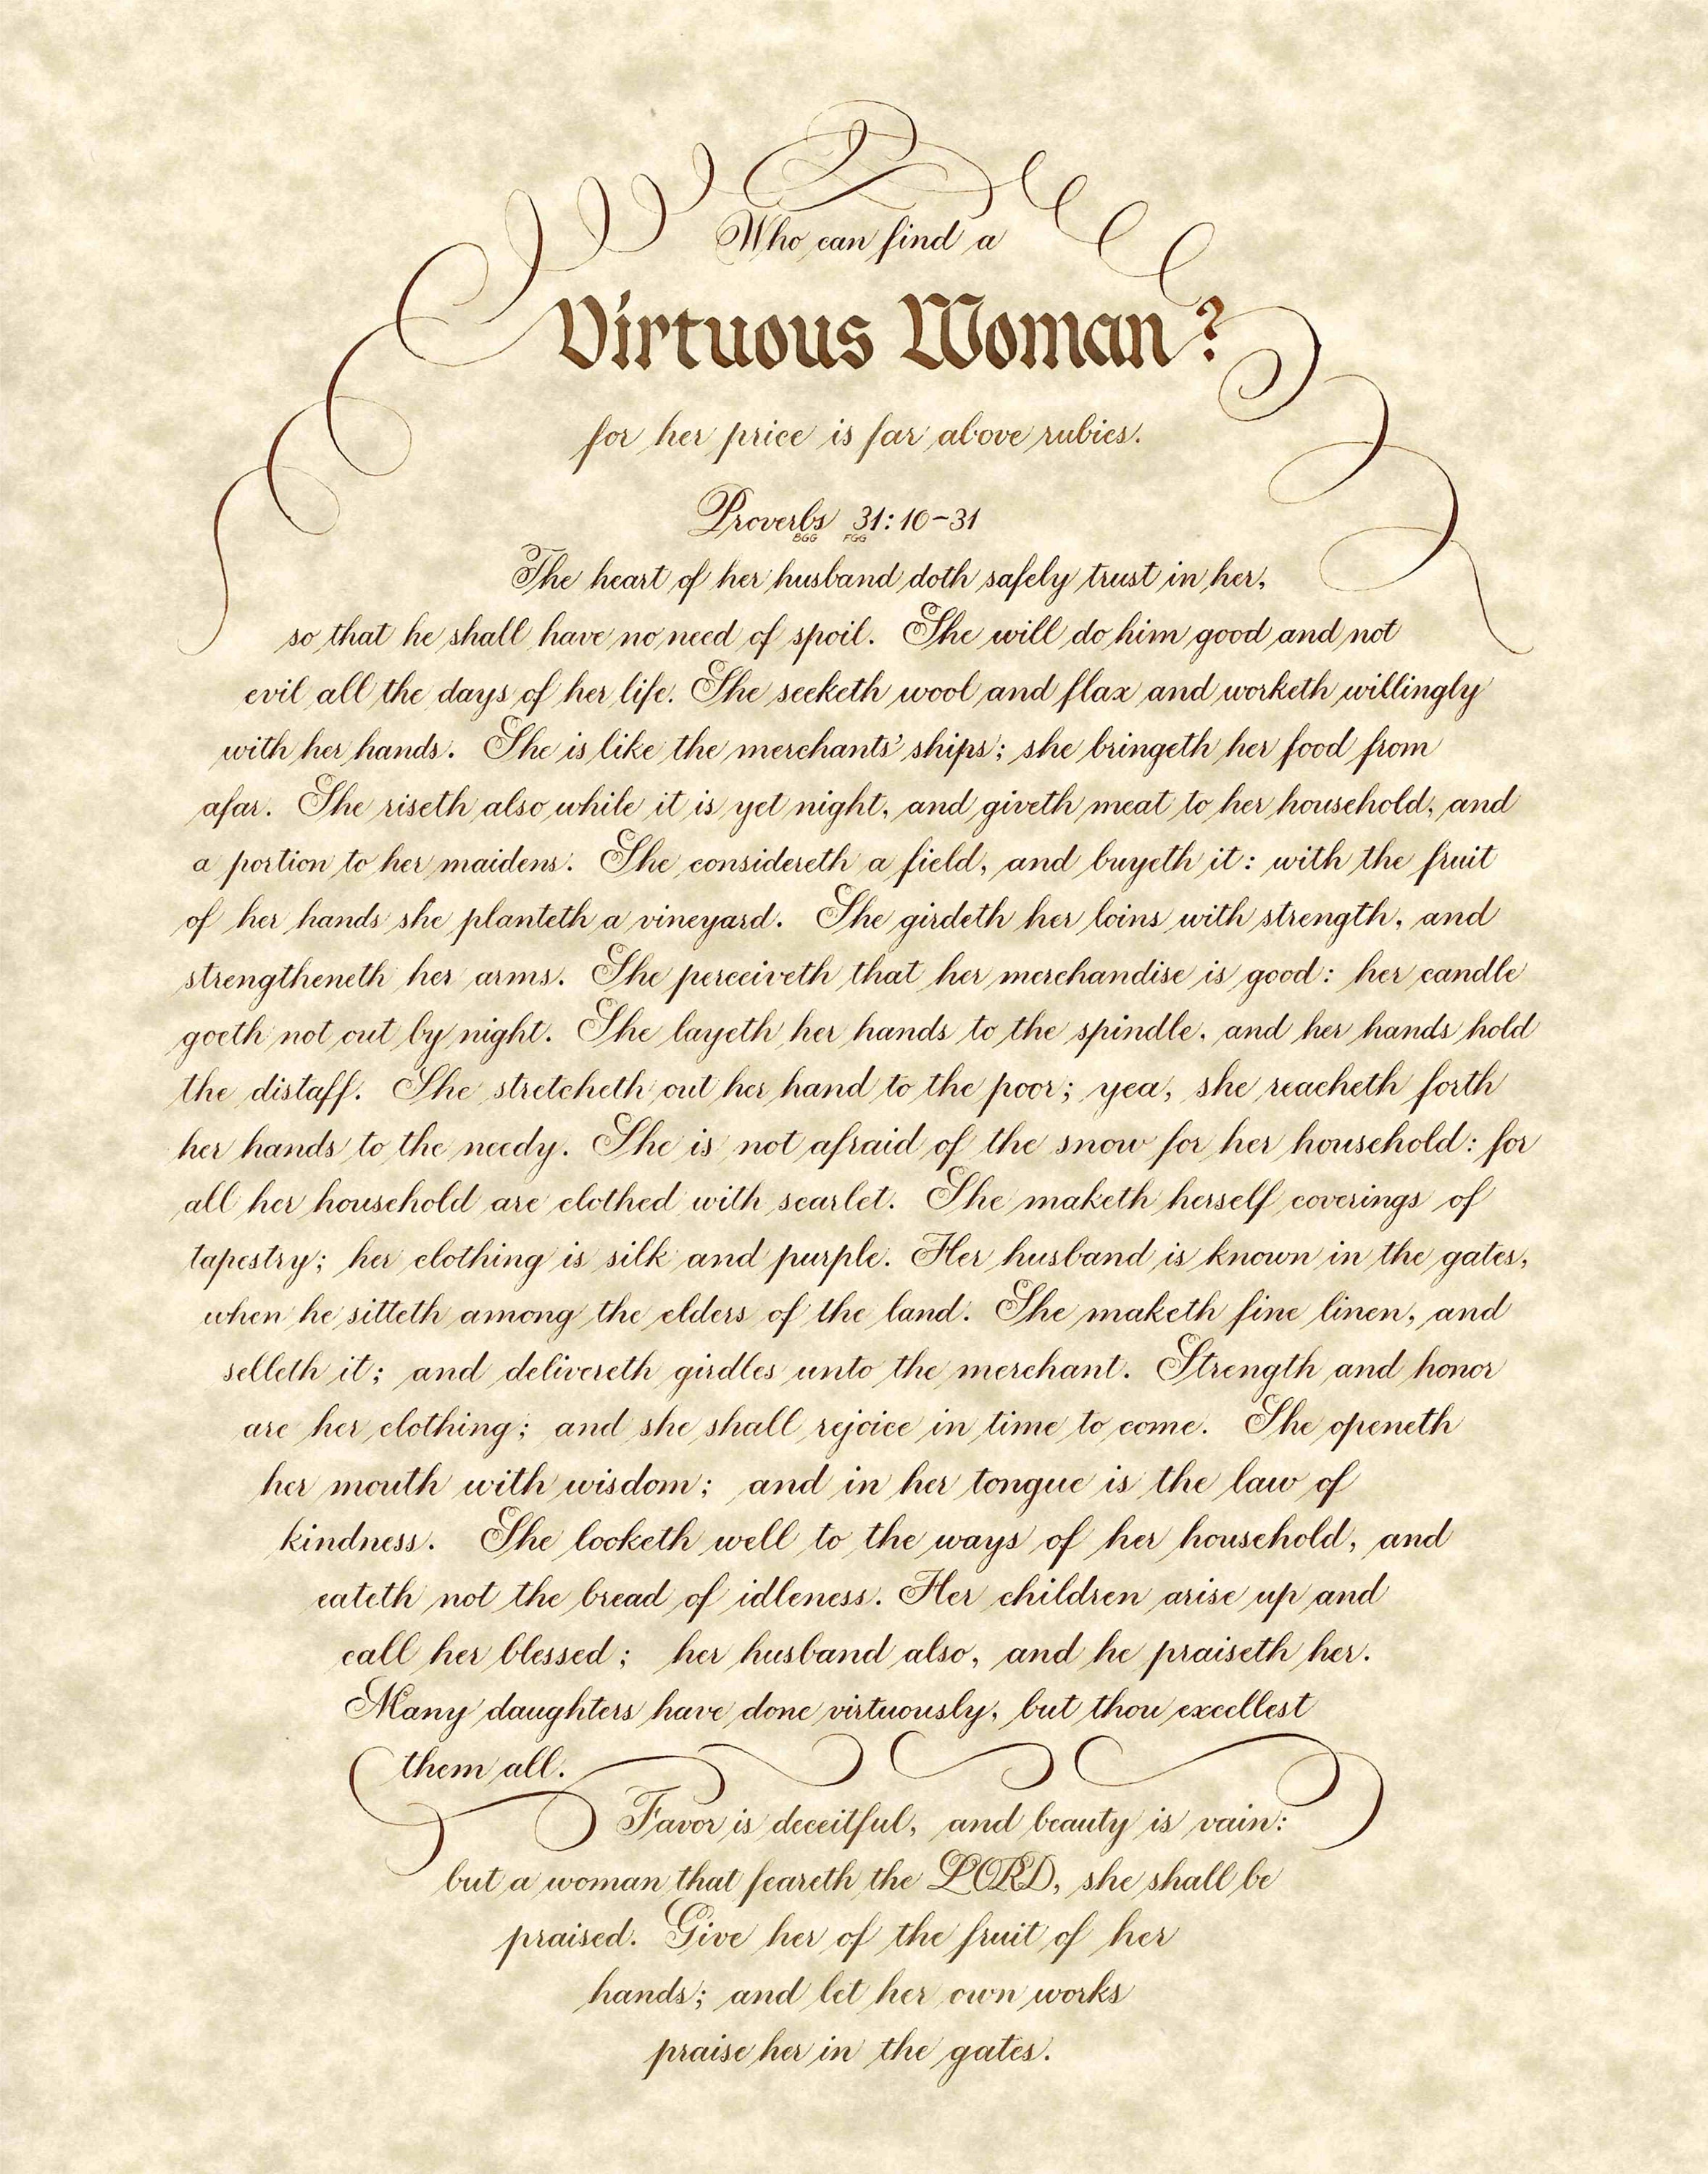 Who can find a
Virtuous Woman?
for her price is far above rubies.
Proverbs 31:10-31
BGG FGG
The heart of her husband doth safely trust in her,
so that he shall have no need of spoil. She will do him good and not
evil all the days of her life. She seeketh wool and flax and worketh willingly
with her hands. She is like the merchants' ships; she bringeth her food from
afar. She riseth also while it is yet night, and giveth meat to her household, and
a portion to her maidens. She considereth a field, and buyeth it: with the fruit
of her hands she planteth a vineyard. She girdeth her loins with strength, and
strengtheneth her arms. She perceiveth that her merchandise is good: her candle
goeth not out by night. She layeth her hands to the spindle, and her hands hold
the distaff. She stretcheth out her hand to the poor; yea, she reacheth forth
her hands to the needy. She is not afraid of the snow for her household: for
all her household are clothed with scarlet. She maketh herself coverings of
tapestry; her clothing is silk and purple. Her husband is known in the gates,
when he sitteth among the elders of the land. She maketh fine linen, and
selleth it; and delivereth girdles unto the merchant. Strength and honor
are her clothing; and she shall rejoice in time to come. She openeth
her mouth with wisdom; and in her tongue is the law of
kindness. She looketh well to the ways of her household, and
eateth not the bread of idleness. Her children arise up and
call her blessed; her husband also, and he praiseth her.
Many daughters have done virtuously, but thou excellest
them all.
Favor is deceitful, and beauty is vain:
but a woman that feareth the LORD, she shall be
praised. Give her of the fruit of her
hands; and let her own works
praise her in the gates.